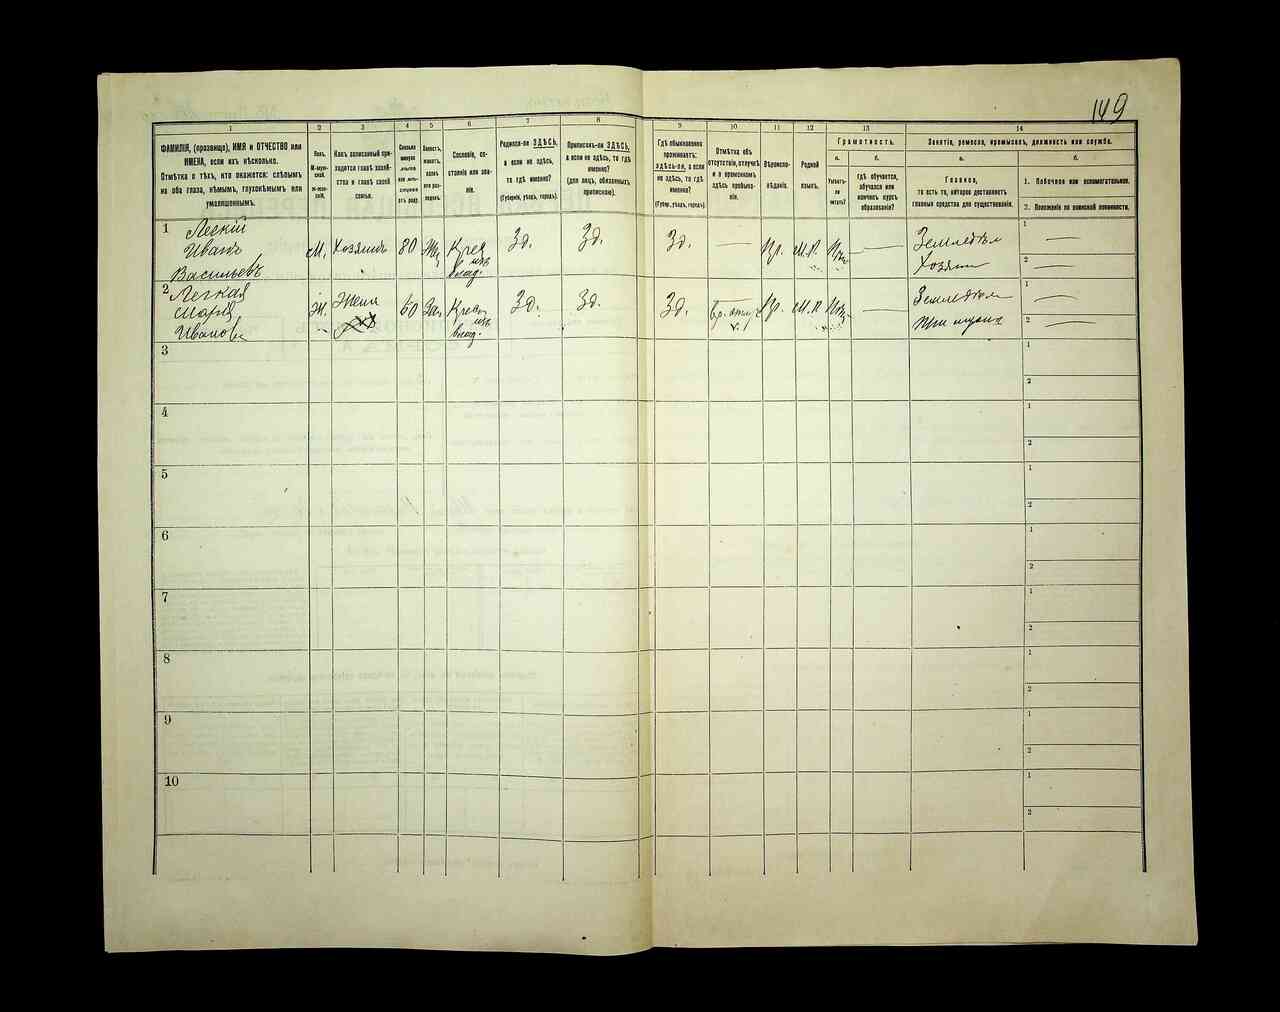 149
1
2
3
4
5
6
7
8
9
10
11
12
13
14
ФАМИЛІЯ, (прозвище), ИМЯ и ОТЧЕСТВО или
ИМЕНА, если ихъ нѣсколько.
Отмѣтка о тѣхъ, кто окажется: слѣпымъ
на оба глаза, нѣмымъ, глухонѣмымъ или
умалишеннымъ.
Полъ.
М-мужской.
Ж-женскій.
Какъ записанный приходится главѣ хозяйства и главѣ своей семьи.
Сословіе, состояніе или званіе.
Родился-ли ЗДѢСЬ,
а если не здѣсь,
то гдѣ именно?
(Губернія, уѣздъ, городъ).
Приписанъ-ли ЗДѢСЬ,
а если не здѣсь, то гдѣ
именно?
(для лицъ, обязанныхъ
припискою).
Гдѣ обыкновенно
проживаетъ:
здѣсь-ли, а если
не здѣсь, то гдѣ
именно?
(Губер., уѣздъ, городъ).
Отмѣтка объ
отсутствіи, отлучкѣ
и о временномъ
здѣсь пребываніи.
Вѣроисповѣданіе.
Родной
языкъ.
Грамотность.
а.
Умѣетъ-ли
читать?
б.
гдѣ обучается,
обучался или
кончилъ курсъ
образованія?
Занятіе, ремесло, промыселъ, должность или служба.
а.
Главное,
то есть то, которое доставляетъ
главныя средства для существованія.
б.
1. Побочное или вспомогательное.
2. Положеніе по воинской повинности.
1
Легкій
Иванъ
Васильевъ
М.
Хозяинъ
80
Зд.
Зд.
Зд.
—
М.Р.
—
Земледѣл
Хозяин
1 —
2 —
2
Легкая
Марія
Иванов
Ж.
Жена
60
Зд.
Зд.
Зд.
М.Р.
—
Земледѣл
при мужѣ
1 —
2 —
3
1
2
4
1
2
5
1
2
6
1
2
7
1
2
8
1
2
9
1
2
10
1
2